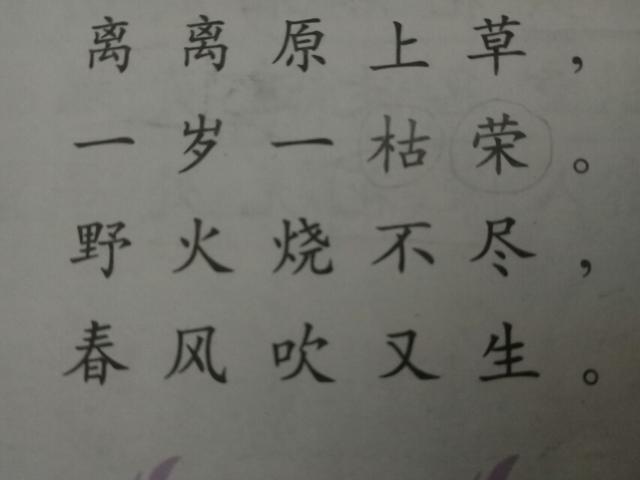 离离原上草，
一岁一枯荣。
野火烧不尽，
春风吹又生。